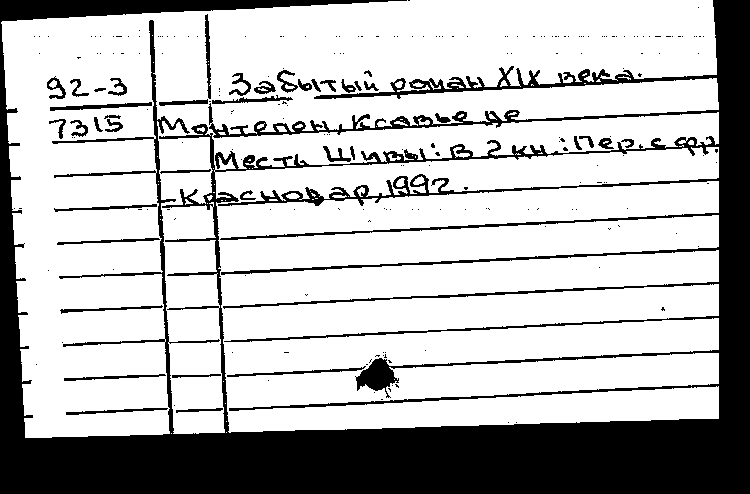 92-3 Забытый роман XIX века.
7315 Монтепен, Ксавье де
Месть Шивы: В 2 кн.: Пер. с фр.
-Краснодар, 1992.